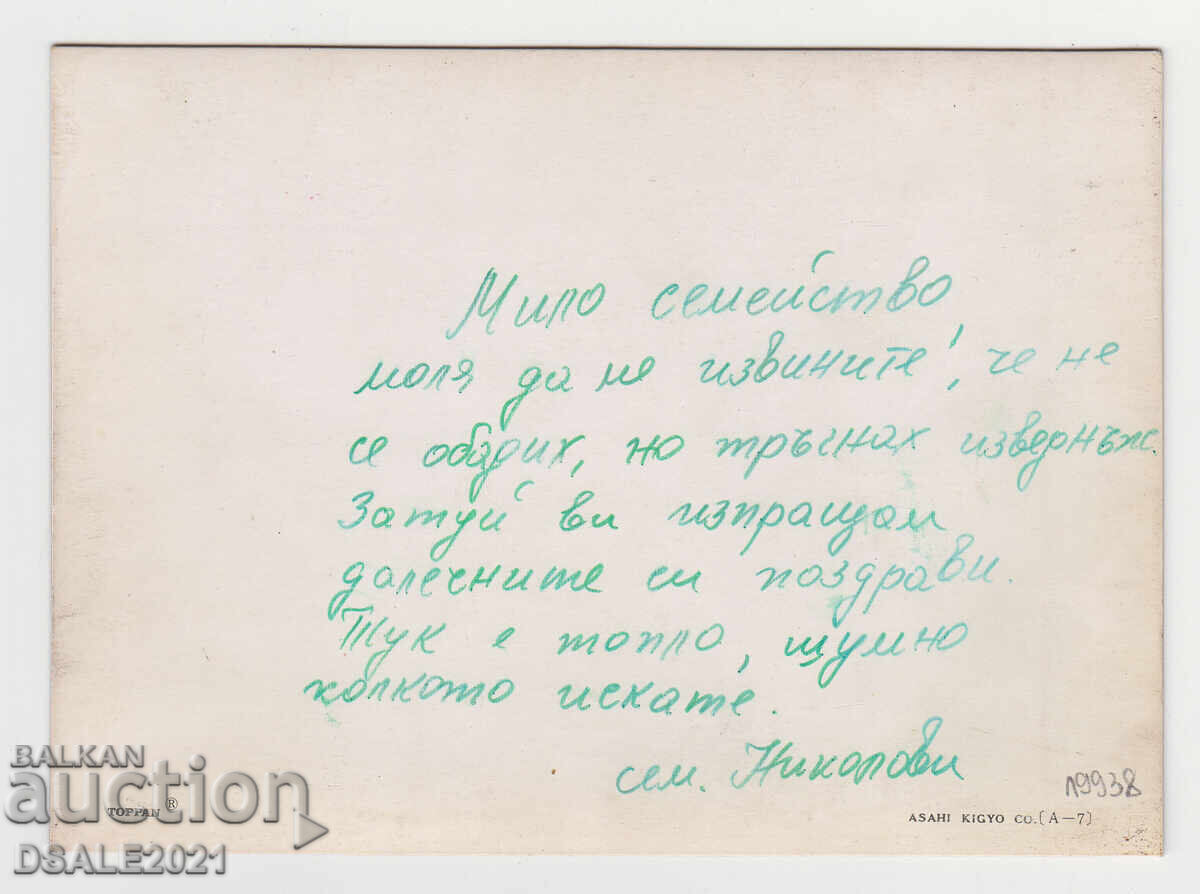 Мило семейство
моля да не извините!, че не
се обадих, но тръгнах изведнъж.
Затуй ви изпращам
далечните си поздрави.
Тук е топло, шумно
колкото искате.
сем. Николови
19938
TOPPAN ®
ASAHI KIGYO CO.[A-7]
BALKAN
auction
DSALE2021